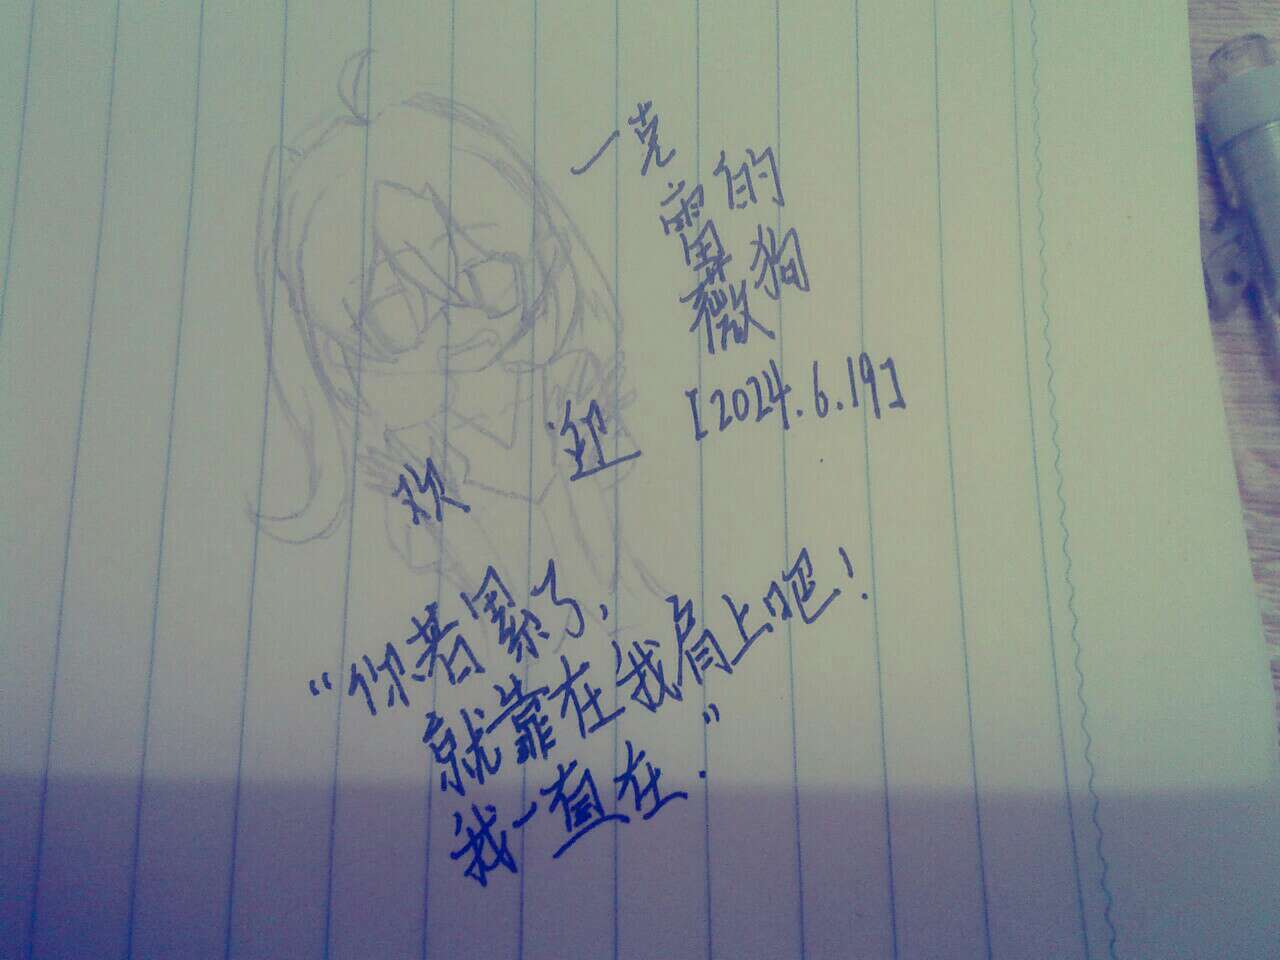 一克
的
薇狗
[2024.6.19]
欢迎
“你若累了，
就靠在我肩上吧！
我一直在.”